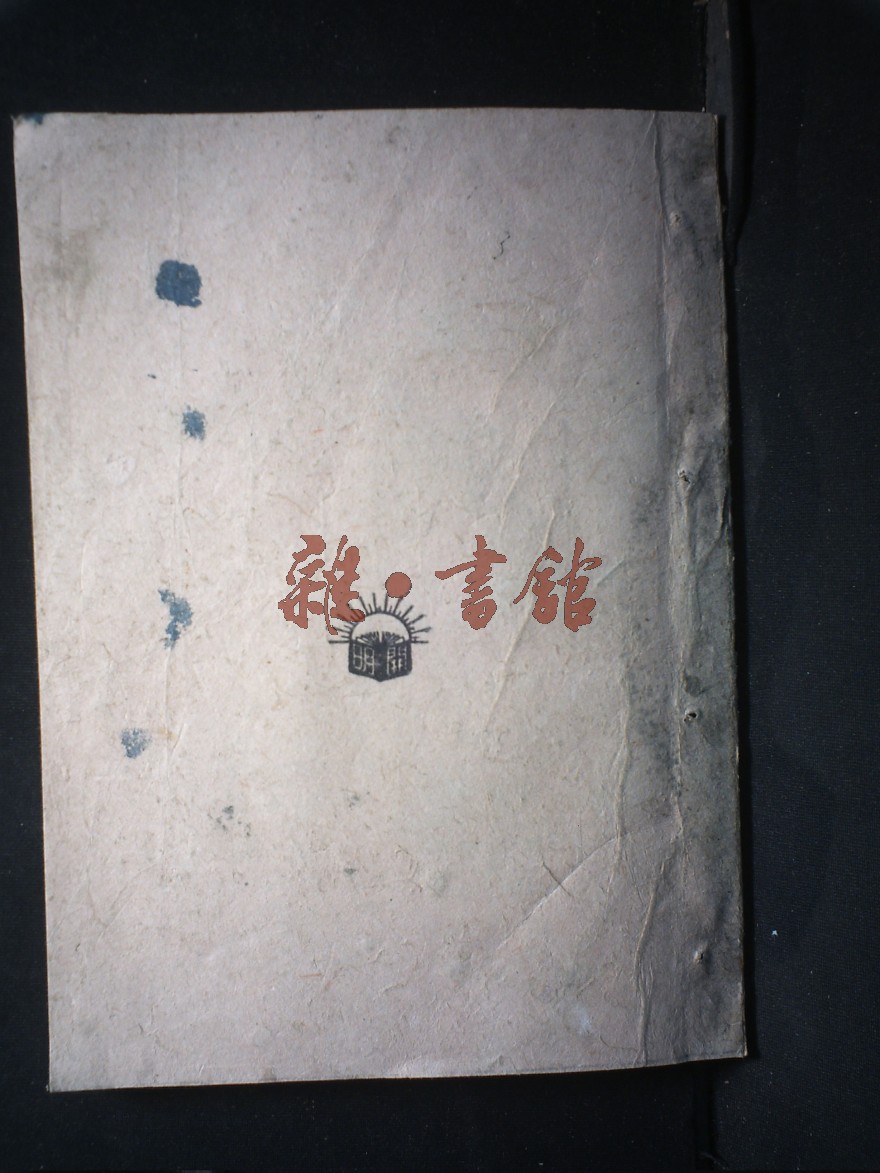 雜·書館
明開